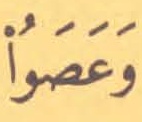 وَعَصَوُا۟